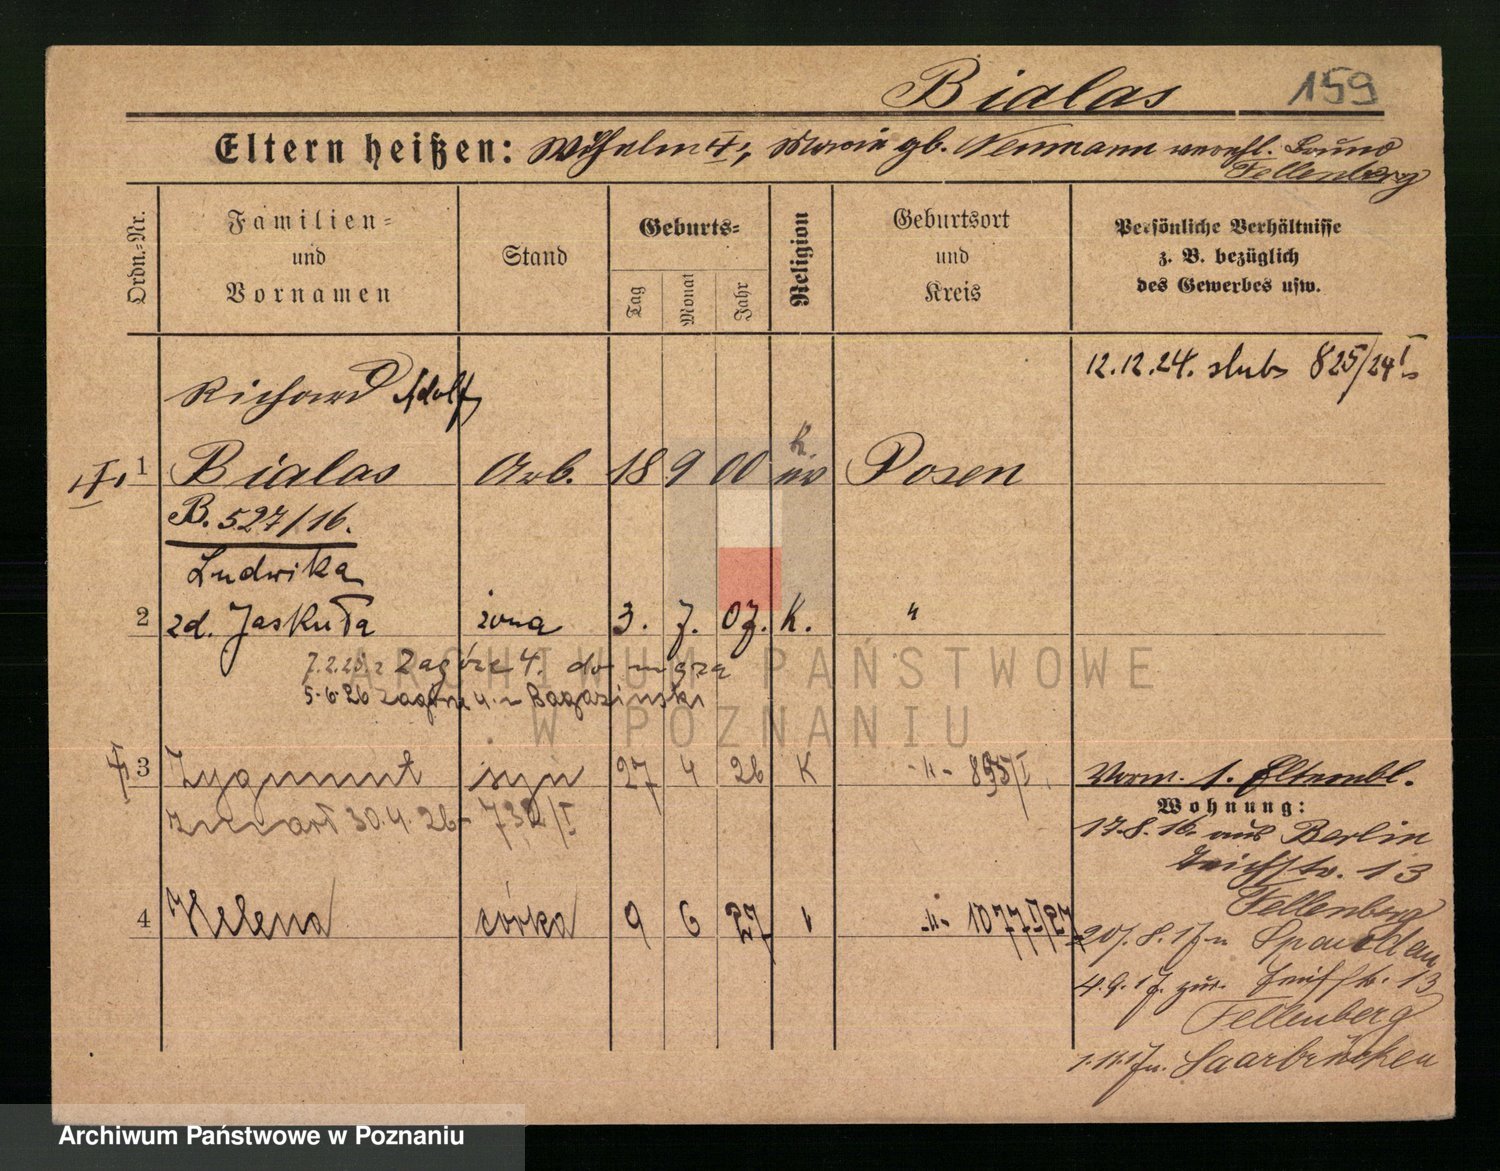 Bialas 159
Eltern heißen: Wilhelm †, Maria gb. Neumann verehl. Bruno
Fellenberg
Ordn.-Nr.
Familien-
und
Vornamen
Stand
Geburts-
Tag
Monat
Jahr
Religion
Geburtsort
und
Kreis
Persönliche Verhältnisse
z. B. bezüglich
des Gewerbes usw.
12.12.24. slub 825/24 I
Richard Adolf
1 Bialas Arb. 18 9 00 K. Posen
B. 527/16.
Ludwika
2 zd. Jaskuła żona 3. 7. 07. K. "
Zagórze 4. do
5.6.26 Zagórze 4.
3 Zygmunt syn 27 4 26 K -"- 895/I
zmarł 30.4.26 732/I
Vorm. 1. Elternbl.
Wohnung:
17.8.16. aus Berlin
13
Fellenberg
4 Helena córka 9 6 27 -"- 1077 I/27
20.8.17 n Spandau
4.9.17. zur. 13
Fellenberg
n. Saarbrücken
ARCHIWUM PAŃSTWOWE
W POZNANIU
Archiwum Państwowe w Poznaniu